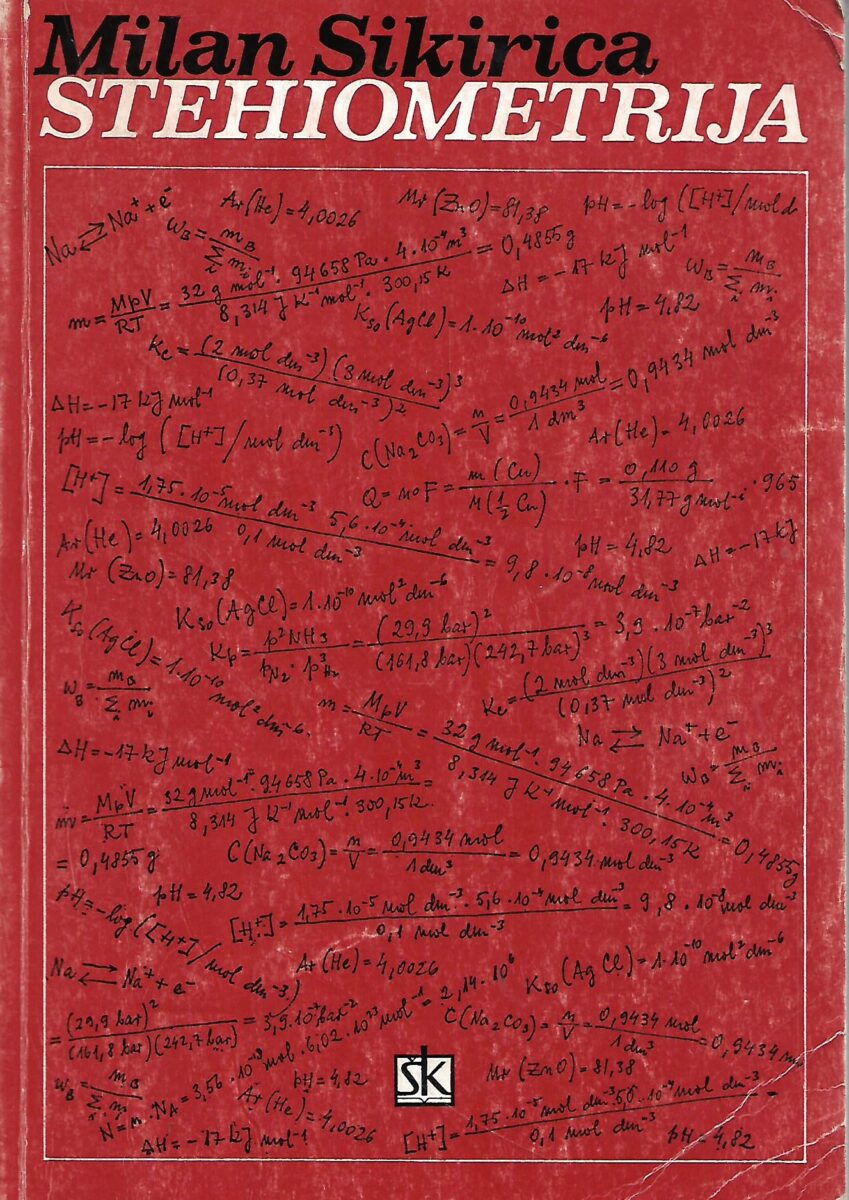 Milan Sikirica
STEHIOMETRIJA
Na ⇄ Na⁺ + e⁻
Ar(He) = 4,0026
Mr(ZnO) = 81,38
pH = -log([H⁺]/mol d
w_B = m_B / Σ_i m_i
m = MpV/RT = 32 g mol⁻¹ · 94658 Pa · 4 · 10⁻⁴ m³ / 8,314 J K⁻¹ mol⁻¹ · 300,15 K = 0,4855 g
ΔH = -17 kJ mol⁻¹
w_B = m_B / Σ_i m_i
K_so(AgCl) = 1 · 10⁻¹⁰ mol² dm⁻⁶
pH = 4,82
K_c = (2 mol dm⁻³)(3 mol dm⁻³)³ / (0,37 mol dm⁻³)²
ΔH = -17 kJ mol⁻¹
C(Na₂CO₃) = n/V = 0,9434 mol / 1 dm³ = 0,9434 mol dm⁻³
pH = -log([H⁺]/mol dm⁻³)
Ar(He) = 4,0026
[H⁺] = 1,75 · 10⁻⁵ mol dm⁻³ 5,6 · 10⁻⁴ mol dm⁻³ / 0,1 mol dm⁻³ = 9,8 · 10⁻⁸ mol dm⁻³
Q = n·F = m(Cu) / M(½Cu) · F = 0,110 g / 31,77 g mol⁻¹ · 965
Ar(He) = 4,0026
pH = 4,82
ΔH = -17 kJ
Mr(ZnO) = 81,38
K_so(AgCl) = 1 · 10⁻¹⁰ mol² dm⁻⁶
K_so(AgCl) = 1 · 10⁻¹⁰ mol² dm⁻⁶.
K_p = p²NH₃ / p_N₂ · p³_H₂ = (29,9 bar)² / (161,8 bar)(242,7 bar)³ = 3,9 · 10⁻⁷ bar⁻²
w_B = m_B / Σ_i m_i
K_c = (2 mol dm⁻³)(3 mol dm⁻³)³ / (0,37 mol dm⁻³)²
m = MpV/RT = 32 g mol⁻¹ · 94658 Pa · 4 · 10⁻⁴ m³ / 8,314 J K⁻¹ mol⁻¹ · 300,15 K = 0,4855 g
Na ⇄ Na⁺ + e⁻
ΔH = -17 kJ mol⁻¹
w_B = m_B / Σ_i m_i
m = MpV/RT = 32 g mol⁻¹ · 94658 Pa · 4 · 10⁻⁴ m³ / 8,314 J K⁻¹ mol⁻¹ · 300,15 K. =
= 0,4855 g
C(Na₂CO₃) = n/V = 0,9434 mol / 1 dm³ = 0,9434 mol dm⁻³
pH = 4,82
pH = -log([H⁺]/mol dm⁻³)
[H⁺] = 1,75 · 10⁻⁵ mol dm⁻³ · 5,6 · 10⁻⁴ mol dm⁻³ / 0,1 mol dm⁻³ = 9,8 · 10⁻⁸ mol dm⁻³
Na ⇄ Na⁺ + e⁻
Ar(He) = 4,0026
K_so(AgCl) = 1 · 10⁻¹⁰ mol² dm⁻⁶
= (29,9 bar)² / (161,8 bar)(242,7 bar) = 3,9 · 10⁻⁷ bar⁻²
C(Na₂CO₃) = n/V = 0,9434 mol / 1 dm³ = 0,9434 m
w_B = m_B / Σ_i m_i
N = n · N_A = 3,56 · 10⁻¹⁸ mol · 6,02 · 10²³ mol⁻¹ = 2,14 · 10⁶
pH = 4,82
ŠK
Mr(ZnO) = 81,38
Ar(He) = 4,0026
ΔH = -17 kJ mol⁻¹
[H⁺] = 1,75 · 10⁻⁵ mol dm⁻³ 5,6 · 10⁻⁴ mol dm⁻³ / 0,1 mol dm⁻³ =
pH = 4,82